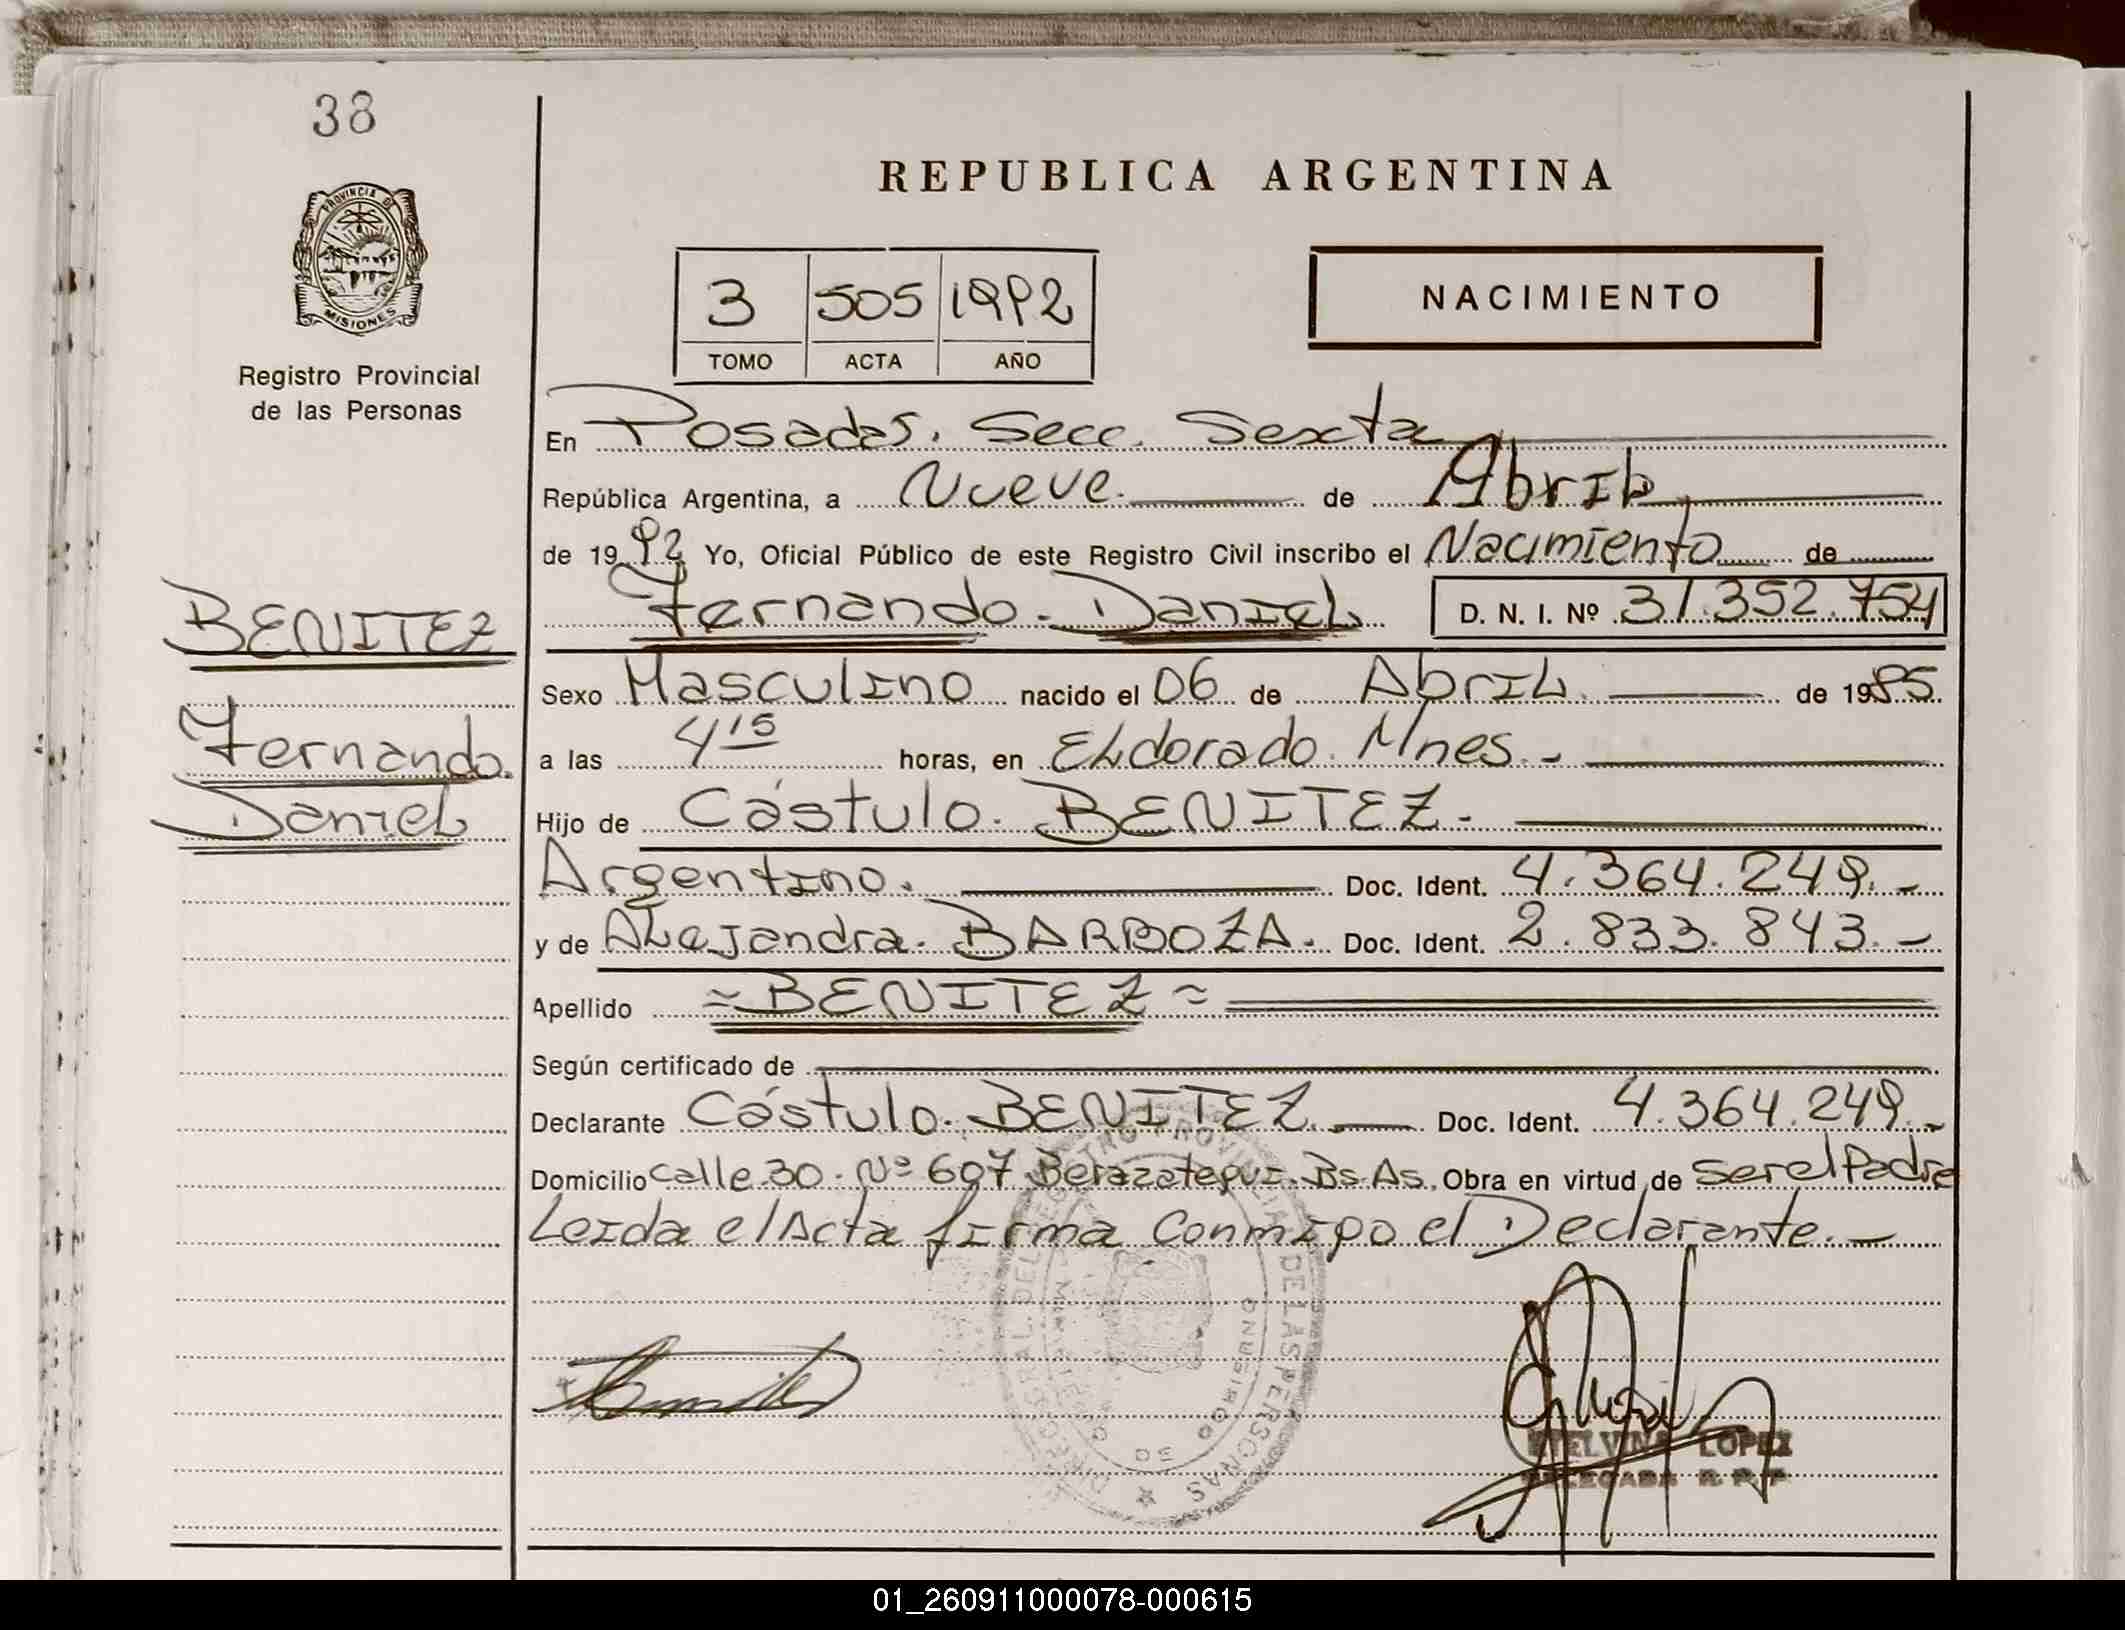 38
REPUBLICA ARGENTINA
PROVINCIA DE
MISIONES
Registro Provincial
de las Personas
3 505 1992
TOMO ACTA AÑO
NACIMIENTO
En Posadas. Secc. Sexta
República Argentina, a Nueve. de Abril
de 1992 Yo, Oficial Público de este Registro Civil inscribo el Nacimiento de
Fernando. Daniel D. N. I. Nº 31.352.754
BENITEZ
Fernando.
Daniel
Sexo Masculino nacido el 06 de Abril. de 1985.
a las 4 15 horas, en Eldorado. Mnes.-
Hijo de Cástulo. BENITEZ.
Argentino. Doc. Ident. 4.364.249.-
y de Alejandra. BARBOZA. Doc. Ident. 2.833.843.-
Apellido ≈ BENITEZ ≈
Según certificado de
Declarante Cástulo. BENITEZ. Doc. Ident. 4.364.249.-
Domicilio calle 30. Nº 607 Berazategui. Bs. As. Obra en virtud de ser el Padre
Leida el Acta firma conmigo el Declarante.-
REGISTRO PROVINCIAL DE LAS PERSONAS
LOPEZ
DELEGADA R. P. P
01_260911000078-000615